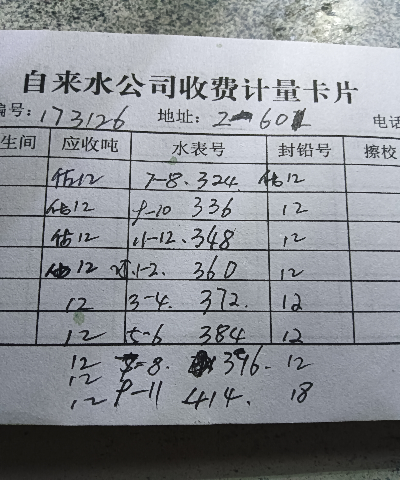 自来水公司收费计量卡片
编号: 173126 地址: 2-601 电话
生间 应收吨 水表号 封铅号 擦校
估12 7-8. 324 估12
估12 9-10 336 12
估12 11-12. 348 12
12 1-2. 360 12
12 3-4. 372. 12
12 5-6 384 12
12 7-8. 396. 12
12
12 9-11 414. 18